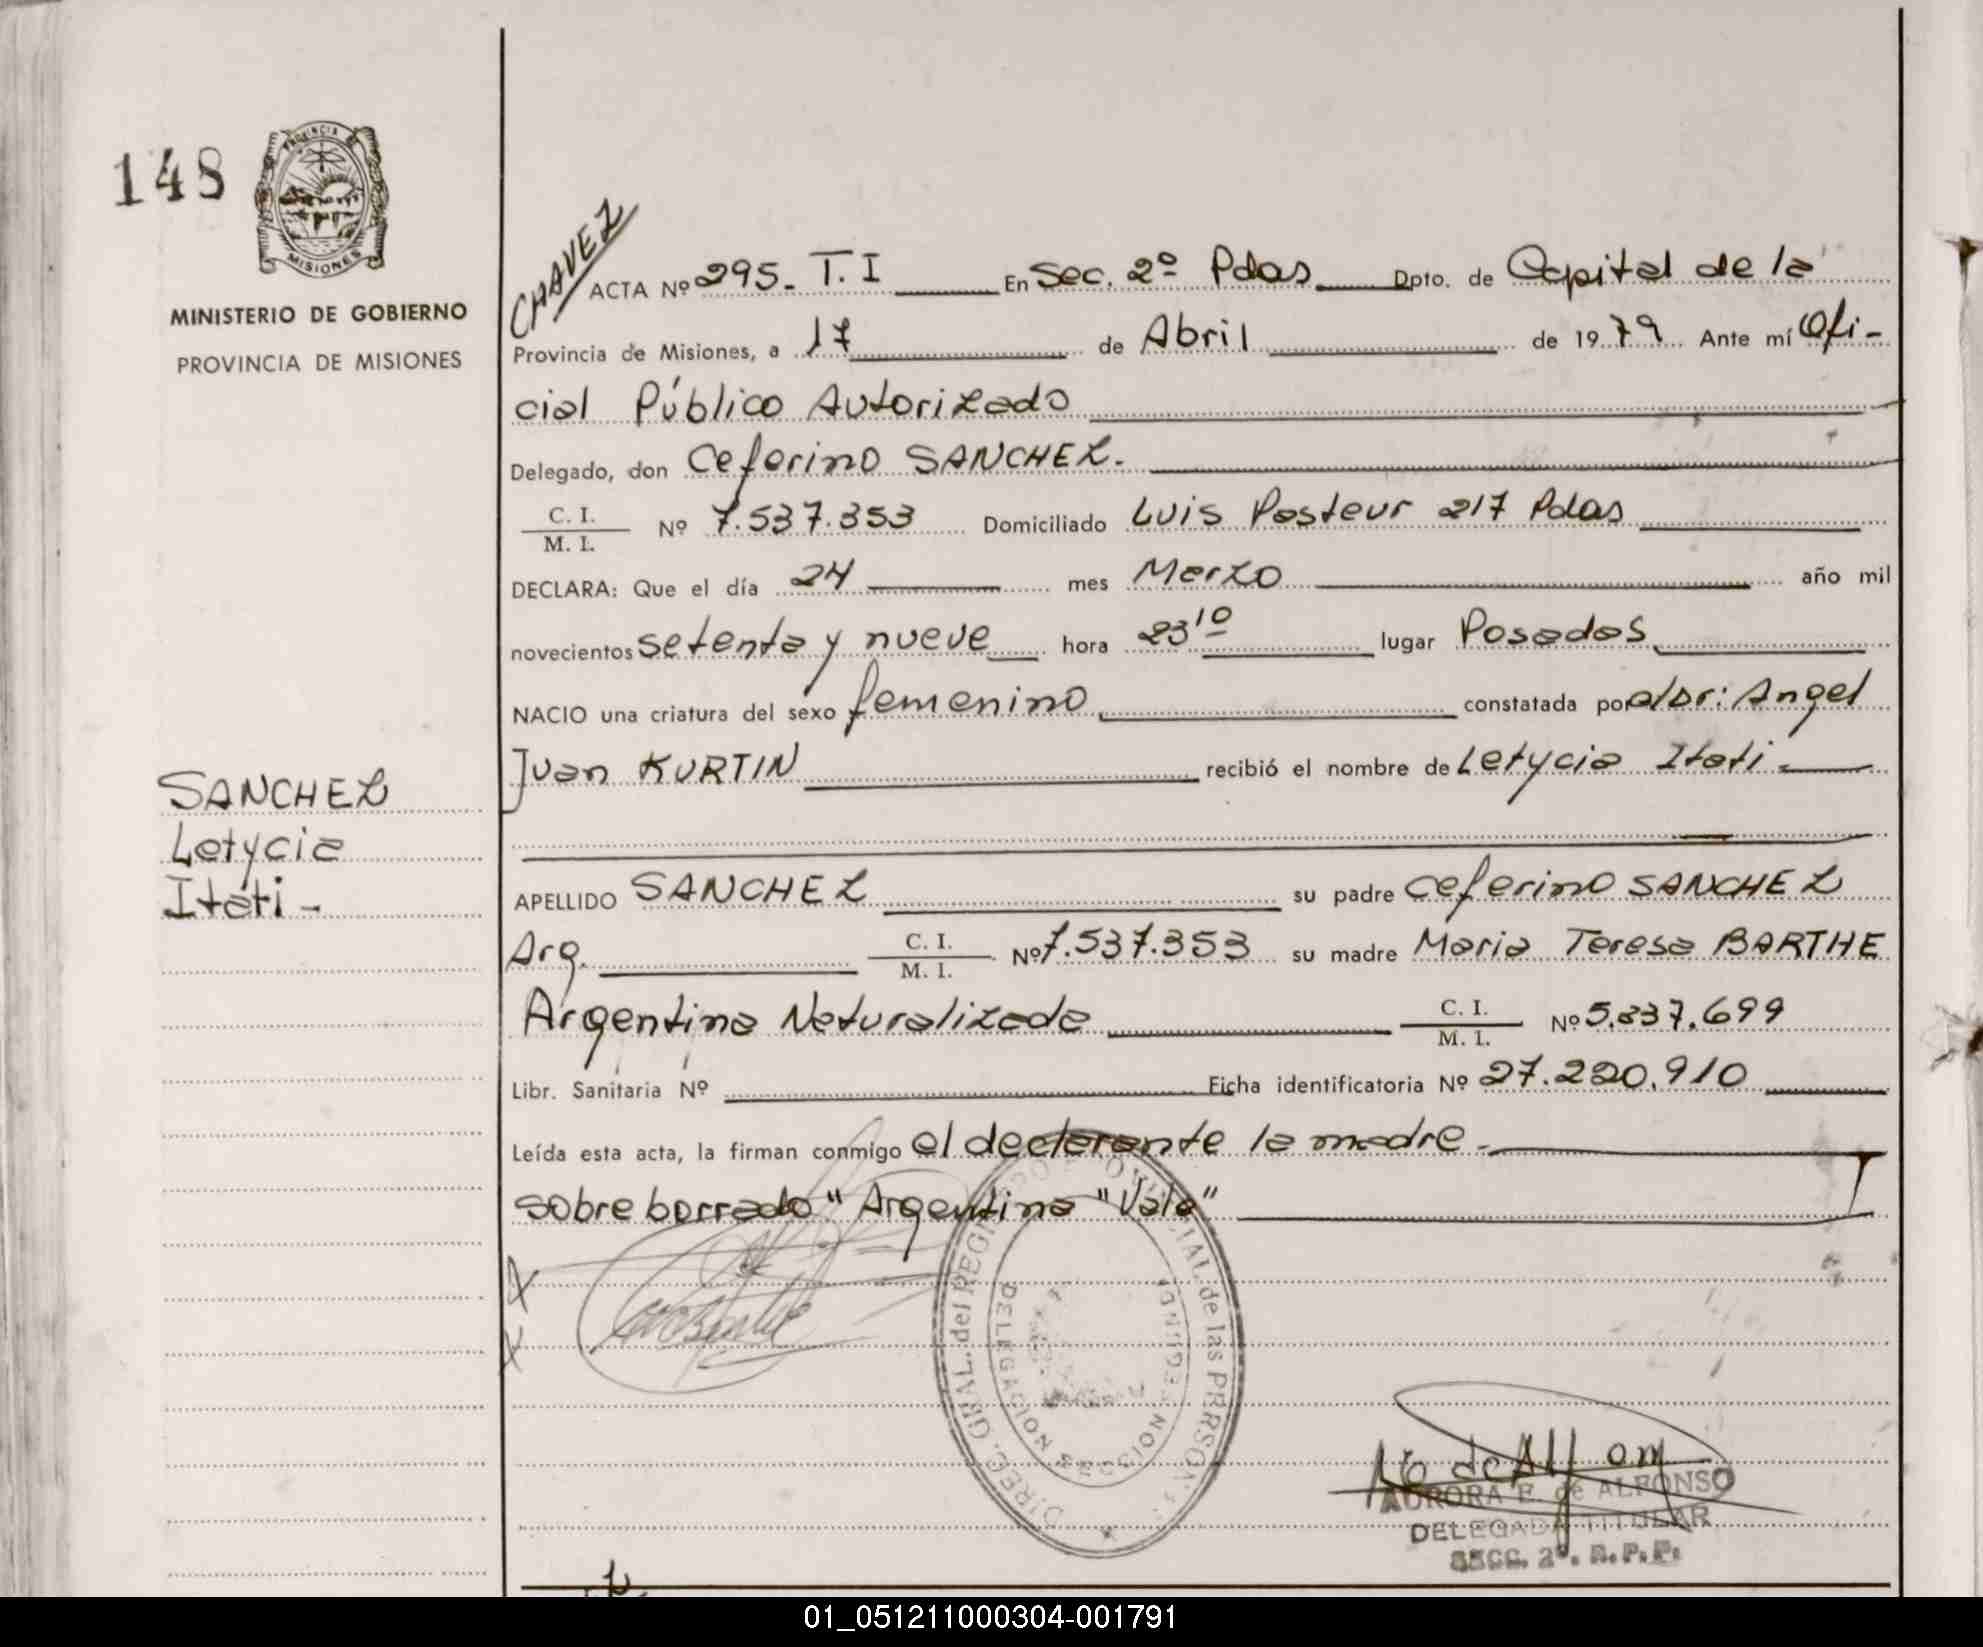 148
PROVINCIA DE
MISIONES
MINISTERIO DE GOBIERNO
PROVINCIA DE MISIONES
SANCHEZ
Letycia
Itatí -
CHAVEZ
ACTA Nº 295- T. I En Sec. 2º Pdas Dpto. de Capital de la
Provincia de Misiones, a 17 de Abril de 1979 Ante mí Ofi-
cial Público Autorizado
Delegado, don Ceferino SANCHEZ.
C. I. / M. I. Nº 7.537.353 Domiciliado Luis Pasteur 217 Pdas
DECLARA: Que el día 24 mes Marzo año mil
novecientos setenta y nueve hora 23 10 lugar Posadas
NACIO una criatura del sexo femenino constatada por el Dr: Angel
Juan KURTIN recibió el nombre de Letycia Itati -
APELLIDO SANCHEZ su padre Ceferino SANCHEZ
Arg. C. I. / M. I. Nº 7.537.353 su madre Maria Teresa BARTHE
Argentina Naturalizada C. I. / M. I. Nº 5.337.699
Libr. Sanitaria Nº Ficha identificatoria Nº 27.220.910
Leída esta acta, la firman conmigo el declarante la madre -
sobre borrado "Argentina" Vale"
X
X
DIREC. GRAL. del REGISTRO PROVINCIAL de las PERSONAS
DELEGACION SECCION SEGUNDA
AURORA E. de ALFONSO
DELEGADA TITULAR
SECC. 2ª. R. P. P.
01_051211000304-001791